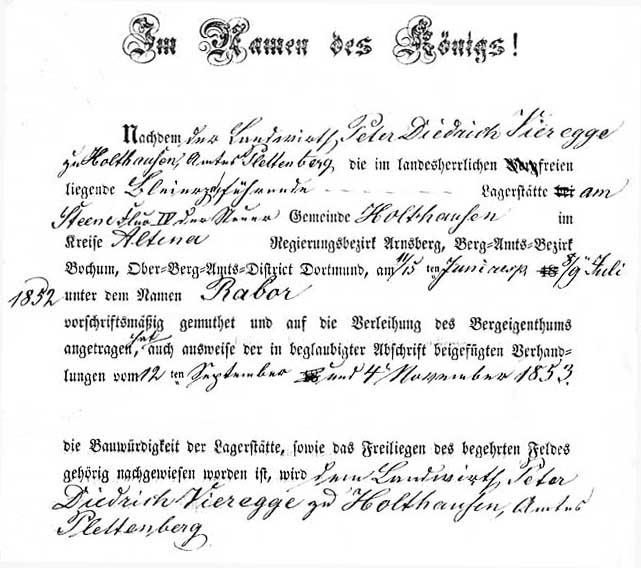 Im Namen des Königs!
Nachdem der Landwirth Peter Diedrich Vieregge
zu Holthausen, Amtes Plettenberg die im landesherrlichen freien
liegende Bleierz führende Lagerstätte am
Steene Flur IV der Steuer Gemeinde Holthausen im
Kreise Altena Regierungsbezirk Arnsberg, Berg-Amts-Bezirk
Bochum, Ober-Berg-Amts-District Dortmund, am 11/15 ten Juni resp 8/9 Juli
1852 unter dem Namen Rabor
vorschriftsmäßig gemuthet und auf die Verleihung des Bergeigenthums
angetragen, hat auch ausweise der in beglaubigter Abschrift beigefügten Verhand-
lungen vom 12 ten September und 4 November 1853.
die Bauwürdigkeit der Lagerstätte, sowie das Freiliegen des begehrten Feldes
gehörig nachgewiesen worden ist, wird dem Landwirth Peter
Diedrich Vieregge zu Holthausen, Amtes
Plettenberg